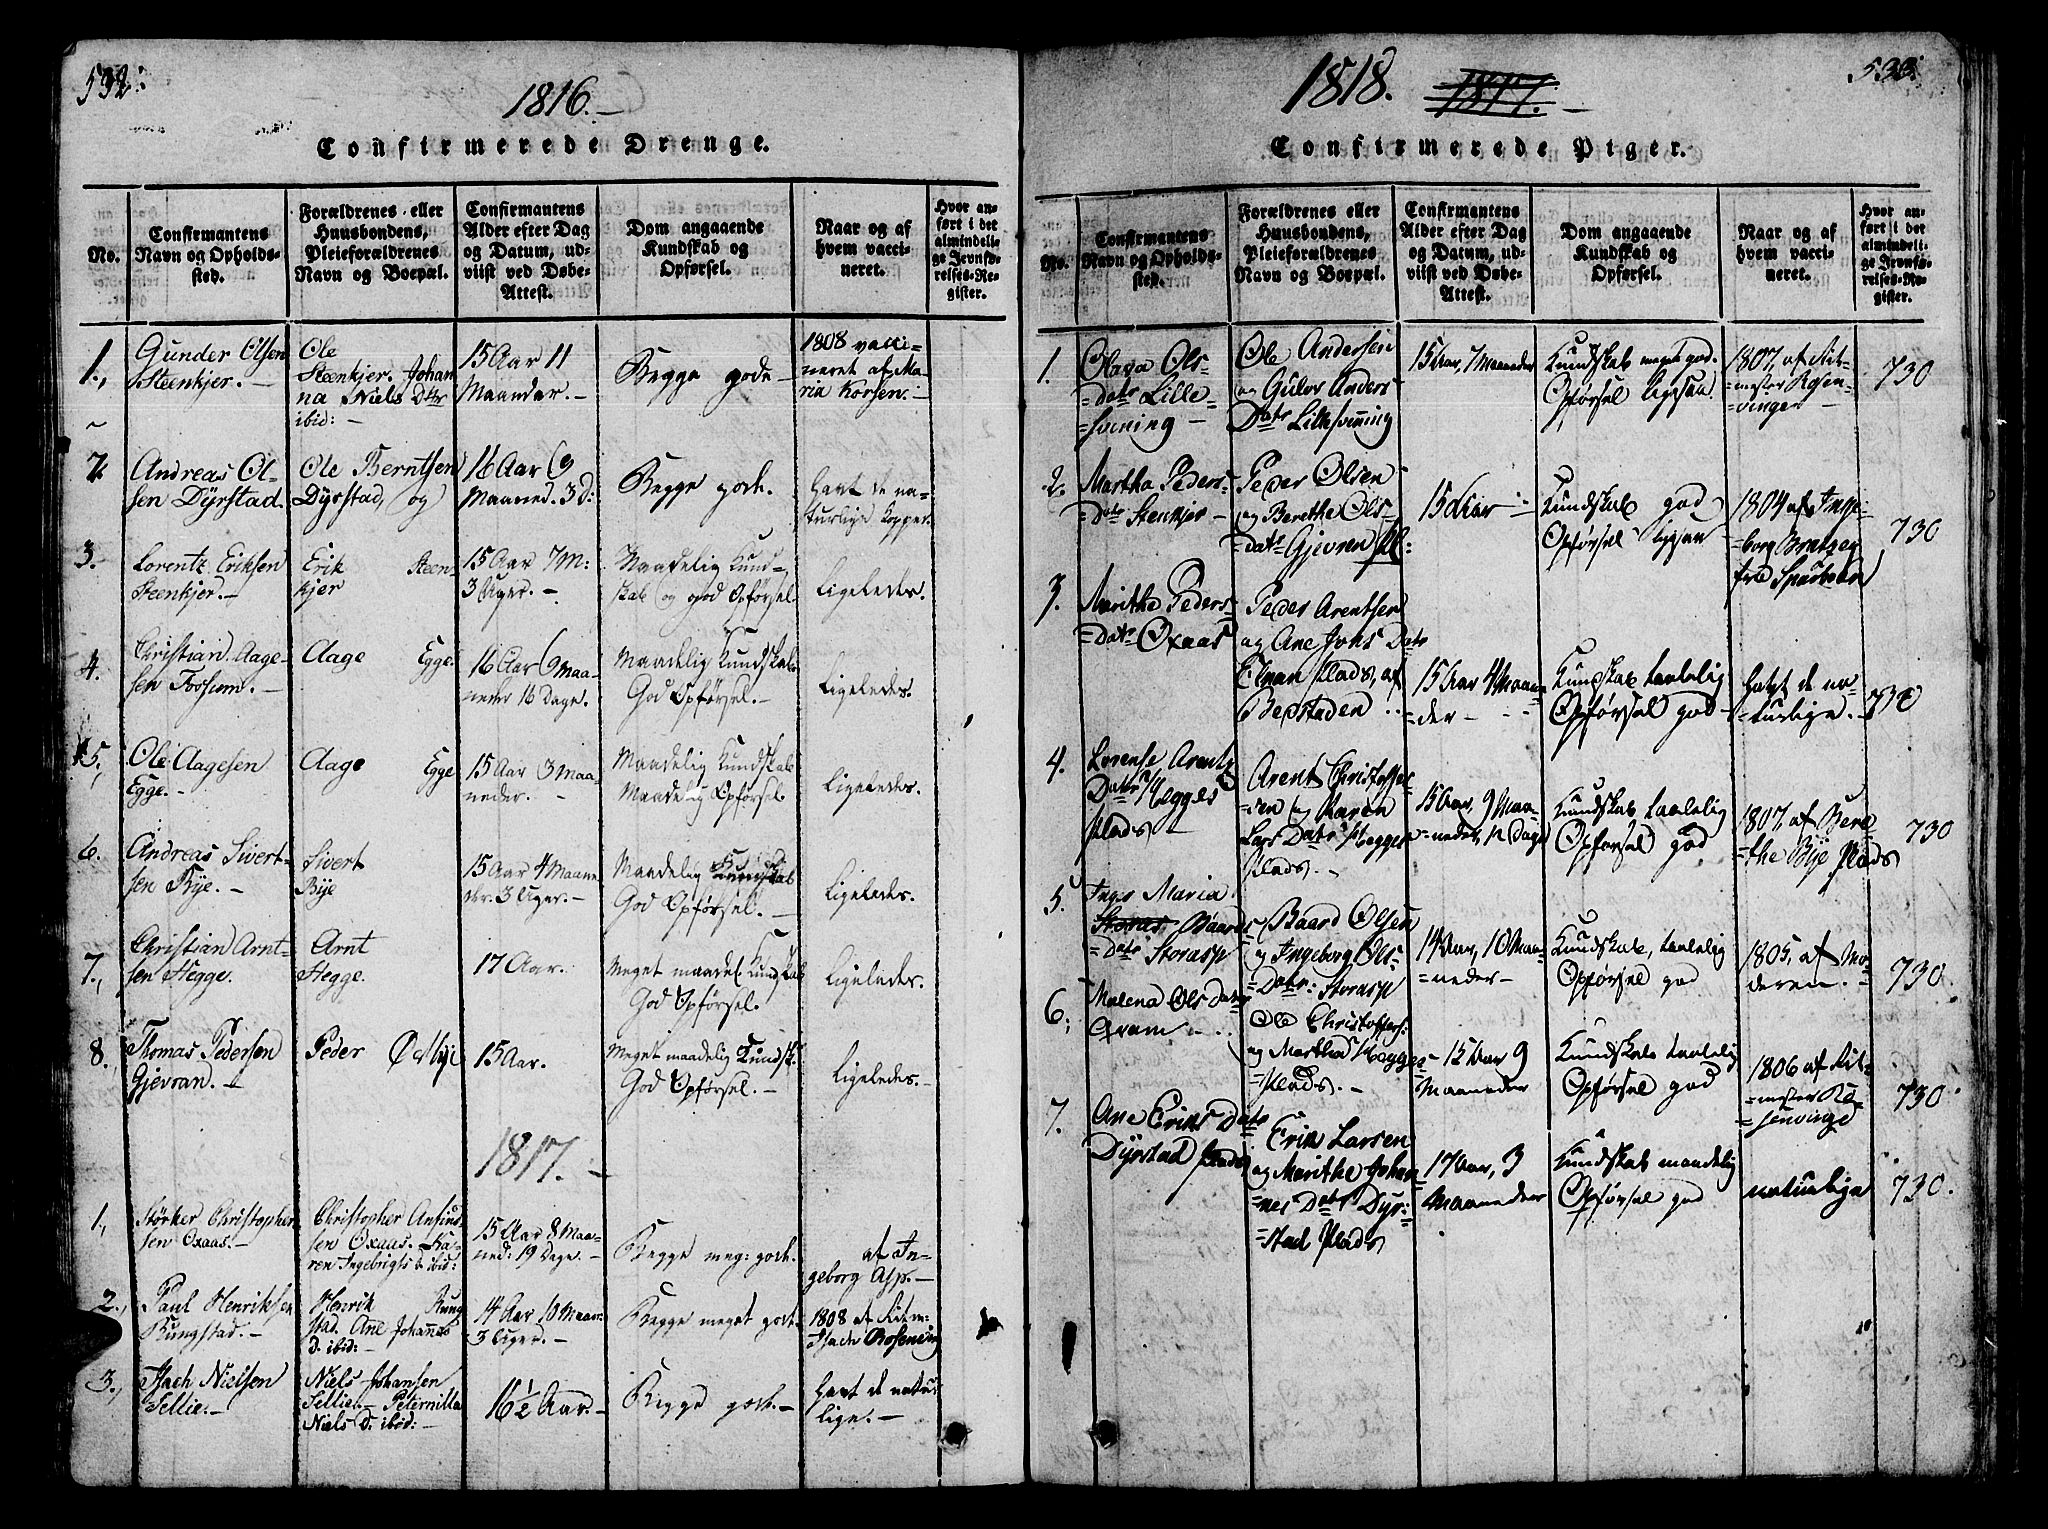 532.
1816.-
Confirmerede Drenge.
No.
Confirmantens
Navn og Opholds-
sted.
Forældrenes eller
Huusbondens,
Pleieforældrenes
Navn og Boepæl.
Confirmantens
Alder efter Dag
og Datum, ud-
viist ved Døbe-
Attest.
Dom angaaende
Kundskab og
Opførsel.
Naar og af
hvem vacci-
neret.
Hvor an-
ført i det
almindeli-
ge Jevnfø-
relses-Re-
gister.
1.,
Gunder Olsen
Steenkjer. -
Ole
Steenkjer. Johan
na Niels Dtter
ibid: -
15 Aar 11
Maander. -
Begge gode -
1808 vacci-
neret af Ma-
ria Korsen. -
2
Andreas Ol-
sen Dyrstad.
Ole Berntsen
Dyrstad, og
16 Aar 9
Maaned. 3 D:
Begge gode.
Havt de na-
turlige Kopper.
3.
Lorentz Eriksen
Steenkjer. -
Erik Steen-
kjer
15 Aar 7 M:
3 Uger. -
Maadelig Kund-
skab og god Opførsel.
Ligeledes.
4.
Christian Aage-
sen Fossum. -
Aage Egge.
16 Aar 9 Maa-
neder 16 Dage.
Maadelig Kundskab.
God Opførsel. -
Ligeledes.
5.,
Ole Aagesen
Egge. -
Aage Egge
15 Aar 3 Maa-
neder. -
Maadelig Kundskab
Maadelig Opførsel.
Ligeledes.
6.
Andreas Sivert-
sen Bye. -
Sivert
Bye
15 Aar 4 Maane
der. 3 Uger. -
Maadelig Kundskab
God Opførsel. -
Ligeledes.
7.,
Christian Arnt-
sen Hegge.
Arnt
Hegge.
17 Aar.
Meget maadel. Kundskab
God Opførsel.
Ligeledes.
8.,
Thomas Pedersen
Gjevran. -
Peder Østbye
15 Aar.
Meget maadelig Kundsk.
God Opførsel. -
Ligeledes. -
1817. -
1.,
Størker Christopher
sen Oxaas. -
Christopher Ansius
sen Oxaas. Ka-
ren Ingebrigts D. ibid:
15 Aar 8 Maa-
ned: 19 Dage. -
Begge meg: gode.
af In-
geborg Asp. -
2.,
Paul Henriksen
Rungstad. -
Henrik Rung
stad. Ane Johannes
D. ibid: -
14 Aar 10 Maan:
3 Uger. -
Begge meget gode.
1808 af Ritm:
Rosenving
3.,
Isach Nielsen
Sellie. -
Niels Johansen
Sellie. - Peternilla
Niels D. ibid: -
16½ Aar. -
Begge gode. -
Havt de natur
lige. -
1818. 1817. -
533.
Confirmerede Piger.
No.
Confirmantens
Navn og Opholds-
sted.
Forældrenes eller
Huusbondens,
Pleieforældrenes
Navn og Boepæl.
Confirmantens
Alder efter Dag
og Datum, ud-
viist ved Døbe-
Attest.
Dom angaaende
Kundskab og
Opførsel.
Naar og af
hvem vacci-
neret.
Hvor an-
ført i det
almindeli-
ge Jevnfø-
relses-Re-
gister.
1.
Olava Ols-
=datr Lille-
=sviining -
Ole Andersen
og Gulov Anders
Datr Lillesviining
15 Aar, 7 Maaneder
Kundskab meget god.
Opførsel ligesaa
1807, af Rit-
=mester Rosen-
=vinger
730
2.
Martha Peders-
=Datr Stenkjer -
Peder Olsen
og Berethe Ols-
=datr Gjevren Pl:
15 Aar -
Kundskab god
Opførsel ligesaa
1804 af Inge-
borg
730
3.
Marithe Peders-
=datr Oxaas
Peder Arentsen
og Ane Johs Datr
Plads, af
Beystaden
15 Aar 4 Maane
=der -
Kundskab taalelig
Opførsel god -
havt de na-
=turlige. -
730
4.
Lorense Arentz
Datr Hegges
Plads -
Arent Christopher
=sen og Karen
Lars Datr Hegges
Plads. -
15 Aar, 9 Maa-
=neder, 12 Dage
Kundskab taalelig
Opførsel god
1807, af Bere
=the Bye Plads
730
5.
Inger Maria
Storas Baards
=Datr Storasp
Baard Olsen
og Ingeborg Ols-
=Datr: Storasp
14 Aar, 10 Maa-
=neder -
Kundskab, taalelig
Opførsel god
1805, af Mo-
deren. -
730.
6.,
Malena Ols Datr
Qvam -
Ole Christoffers:
og Martha Hegges
=Plads. -
15 Aar 9
Maaneder
Kundskab taalelig
Opførsel god
1806 af Rit-
=mester Ro-
=senvinge
730
7.
Ane Eriks Datr
Dyrstad Plads
Erik Larsen
og Marithe Johan
nes Datr Dyr-
=stad Plads
17 Aar, 3
Maaneder
Kundskab maadelig
Opførsel god
naturlige
730.